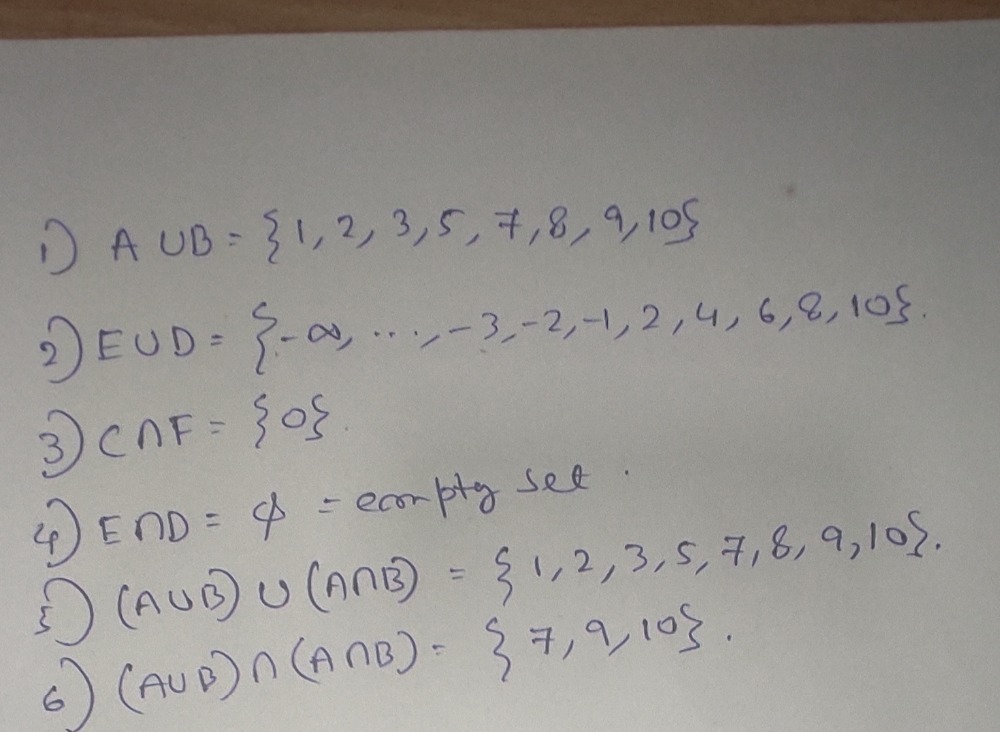 1) A ∪ B = {1, 2, 3, 5, 7, 8, 9, 10}
2) E ∪ D = {-∞, ..., -3, -2, -1, 2, 4, 6, 8, 10}.
3) C ∩ F = {0}.
4) E ∩ D = ϕ = empty set.
5) (A ∪ B) ∪ (A ∩ B) = {1, 2, 3, 5, 7, 8, 9, 10}.
6) (A ∪ B) ∩ (A ∩ B) = {7, 9, 10}.